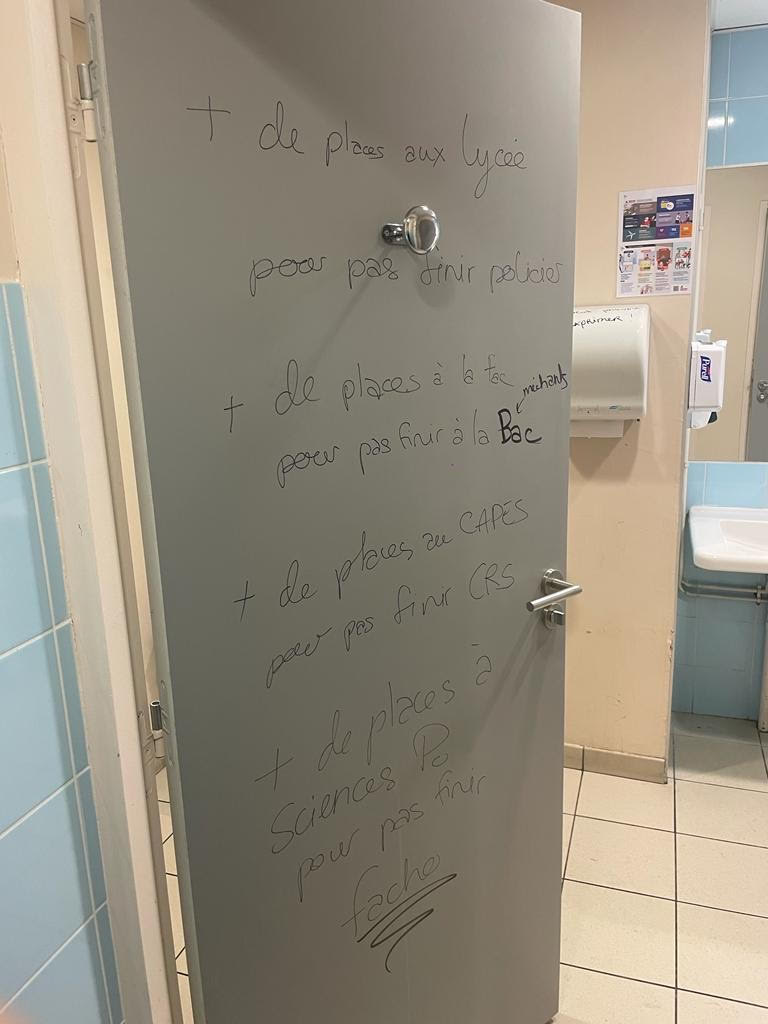 + de places aux lycée
pour pas finir policier
+ de places à la fac
méchants
pour pas finir à la Bac
+ de places au CAPES
pour pas finir CRS
+ de places à
Sciences Po
pour pas finir
facho
xprimer !
Purell